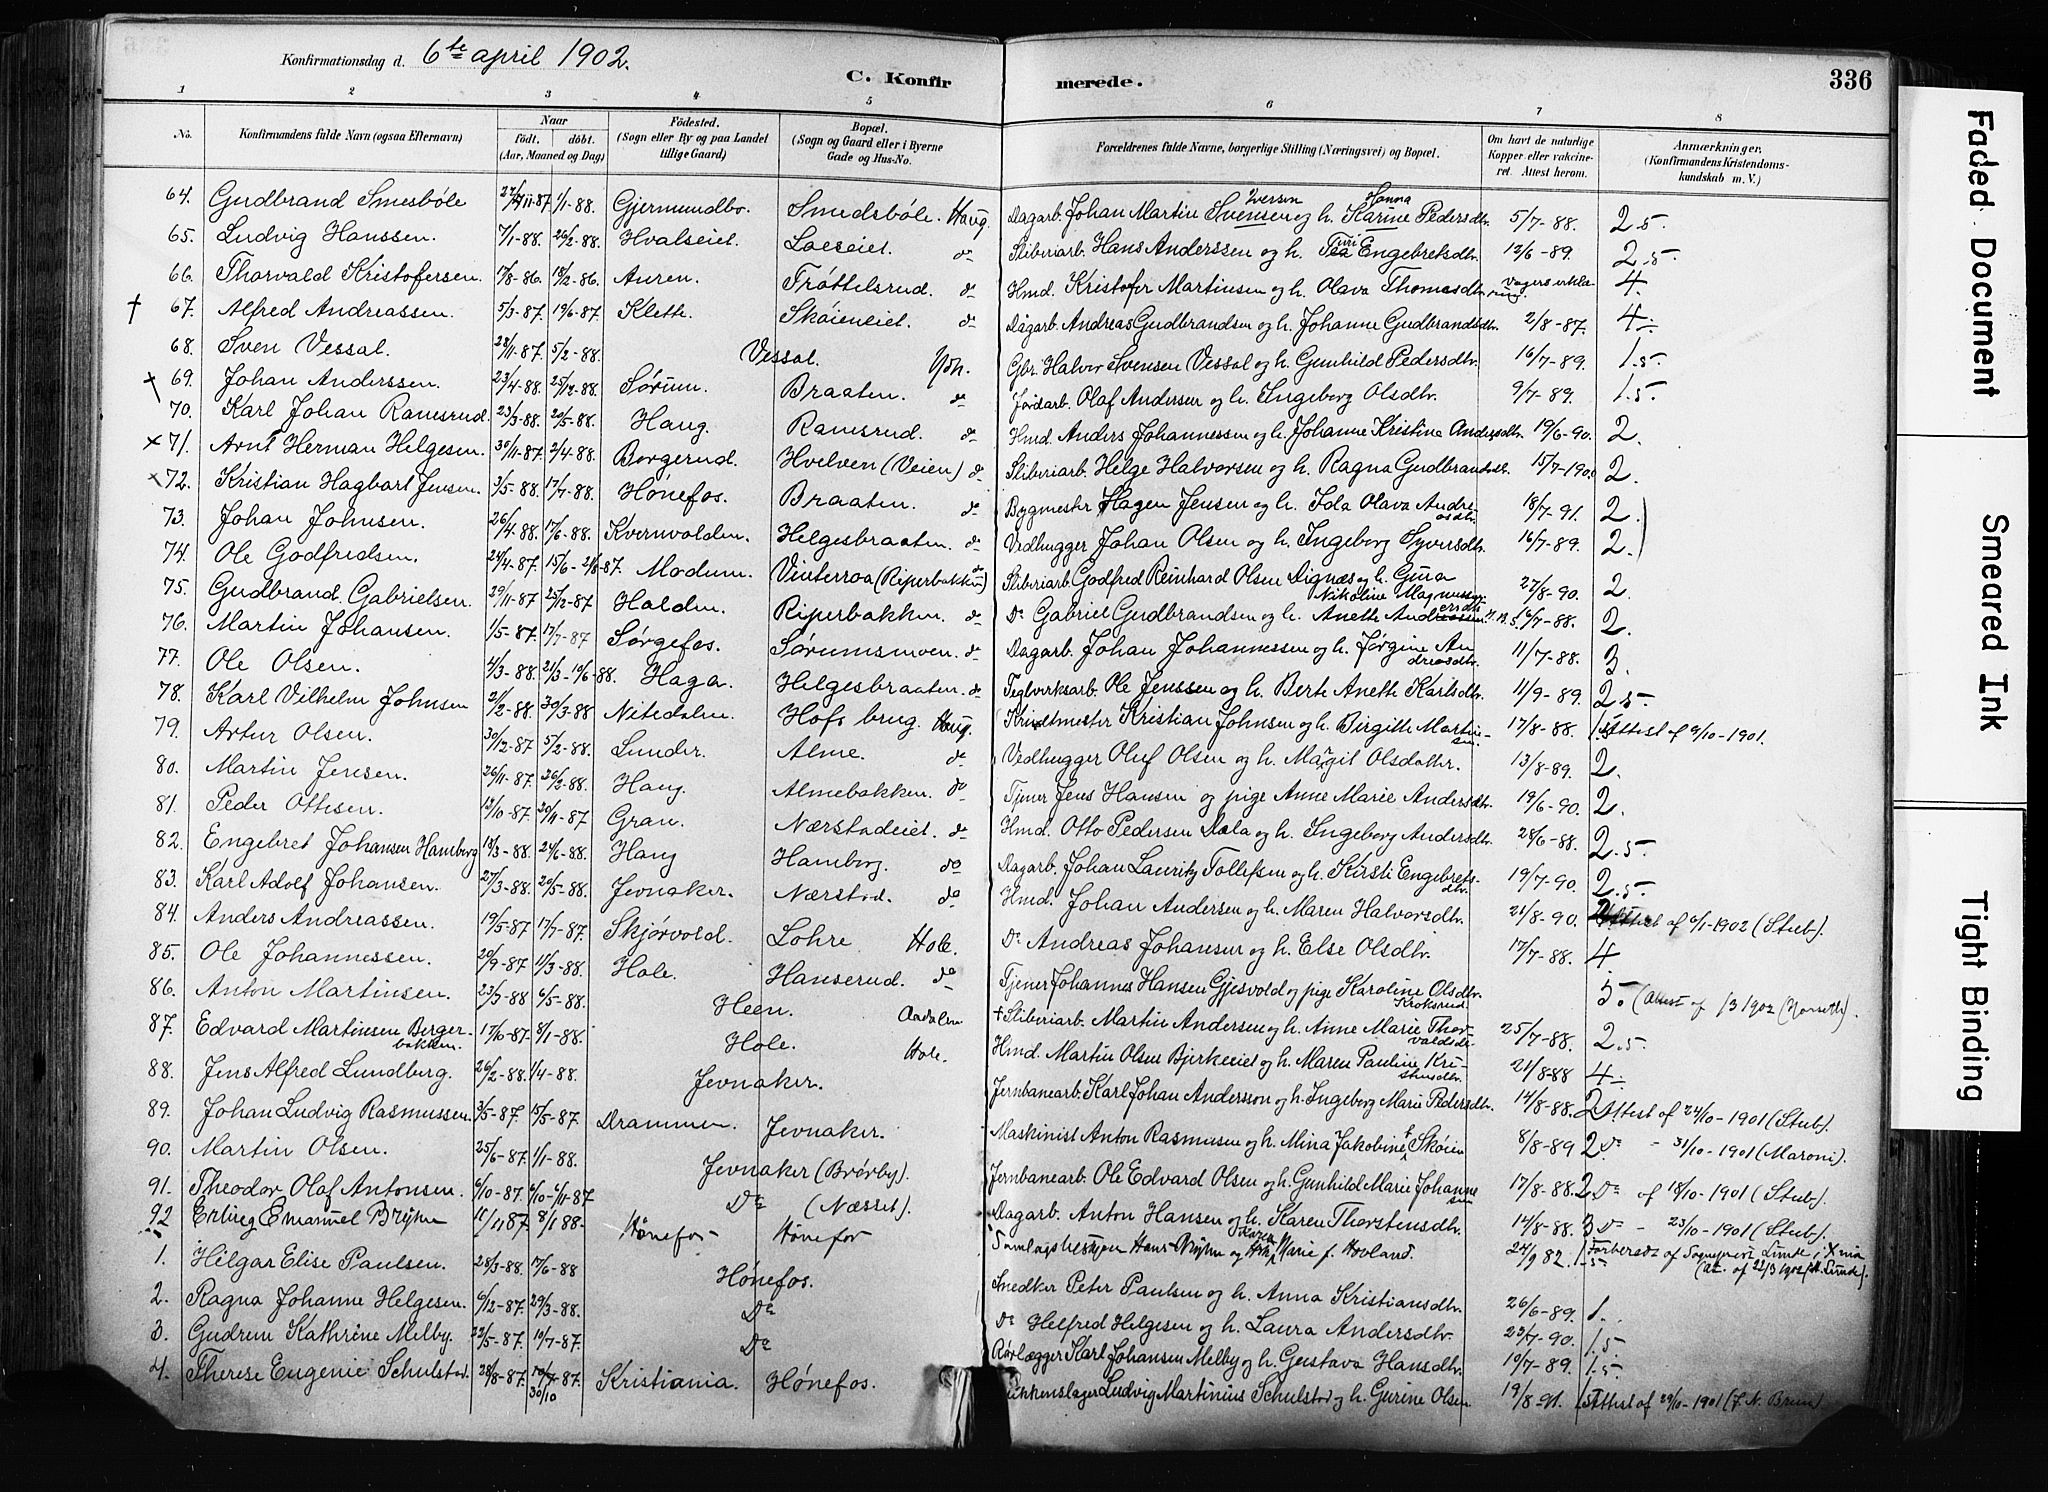 Konfirmationsdag d. 6te april 1902.
C. Konfirmerede. 336
1 2 3 4 5 6 7 8
No. Konfirmandens fulde Navn (ogsaa Efternavn) Naar født. døbt. (Aar, Maaned og Dag) Fødested. (Sogn eller By og paa Landet tillige Gaard) Bopæl. (Sogn og Gaard eller i Byerne Gade og Hus-No. Forældrenes fulde Navne, borgerlige Stilling (Næringsvei) og Bopæl. Om havt de naturlige Kopper eller vakcineret. Attest herom. Anmærkninger. (Konfirmandens Kristendomskundskab m. V.)
64. Gudbrand Smesbøle 11-87 1/1-88. Gjermundbo. Smedsbøle. Haug Dagarb. Johan Martin Svensen Iversen og h. Karine Hanna Pedersdtr. 5/7-88. 2.5
65. Ludvig Hanssen. 7/1-88. 26/2-88. Hvalseiet. Loeseiet. do Sliberiarb. Hans Anderssen og h. Turi Engebretsdtr. 12/6-89. 2.5.
66. Thorvald Kristofersen 17/8-86. 18/2-86. Auren. Trøttelsrud. do Hmd. Kristofer Martinsen og h. Olava Thomasdtr. 4.
† 67. Alfred Andreassen. 5/3-87. 19/6-87. Klette. Skøieneiet. do Dagarb. Andreas Gudbrandsen og h. Johanne Gudbrandsdtr. 2/8-87. 4-
68. Sven Vessal. 22/11-87. 5/2-88. Vessal. Ydn. Gbr. Halvor Svensen Vessal og h. Gunhild Pedersdtr. 16/7-89. 1.5
× 69. Johan Anderssen. 23/4-88. 25/12-88. Sørum. Braaten. do Jordarb. Olaf Andersen og h. Ingeborg Olsdtr. 9/7-89. 1.5.
70. Karl Johan Ramsrud. 23/3-88. 20/5-88. Haug. Ramsrud. do Hmd. Anders Johannessen og h. Johanne Kristine Andersdtr. 19/6-90. 2.
× 71. Arnt Herman Helgesen. 30/11-87. 2/4-88. Borgerud. Hvelven (Veien) do Sliberiarb. Helge Halvorsen og h. Ragna Gudbrandsdtr. 15/7-190. 2
× 72. Kristian Hagbart Jensen. 3/5-88. 17/7-88. Hønefos. Braaten. do Bygmester Hagen Jensen og h. Ida Olava Andreasdtr. 18/7-91. 2.
73. Johan Johnsen. 26/4-88. 17/6-88. Kvernvolden. Helgesbraaten. do Vedhugger Johan Olsen og h. Ingeborg Syversdtr. 16/7-89. 2.
74. Ole Godfredsen. 24/4-87. 15/6-2/8-87. Modum. Vinterroa (Riperbakken) do Sliberiarb. Godfred Reinhard Olsen Dignæs og h. Gina Nikoline Magnussen 27/8-90. 2
75. Gudbrand Gabrielsen. 29/11-87. 25/12-87 Halden. Riperbakken. do Do Gabriel Gudbrandsen og h. Anette 16/7-88. 2.
76. Martin Johansen. 1/5-87. 17/7-87 Sørgefos. Sørumsmoen. do Dagarb. Johan Johannessen og h. Jørgine Andreasdtr. 11/7-88. 3.
77. Ole Olsen. 4/3-88. 21/3-10/6-88. Haga. Helgesbraaten. do Teglverksarb. Ole Jenssen og h. Berte Anette Karlsdtr. 11/9-89. 2.5
78. Karl Vilhelm Johnsen 21/2-88. 30/3-88 Nitedalen. Hofs brug. Haug. Kristian Johnsen og h. Birgitte Martinsen. 17/8-88. Attest af 9/10-1901.
79. Artur Olsen. 30/12-87 5/2-88. Lunder. Alme. do Vedhugger Oluf Olsen og h. Margit Olsdatter. 13/8-89. 2.
80. Martin Jensen. 26/11-87. 26/2-88. Haug. Almebakken. do Tjener Jens Hansen og pige Anne Marie Andersdtr. 19/6-90. 2.
81. Peder Ottesen. 12/10-87. 20/11-87 Gran. Nærstadeiet. do Hmd. Otto Pedersen Dæla og h. Ingeborg Andersdtr. 28/6-88. 2.5.
82. Engebret Johansen Hamborg 13/3-88. 24/6-88. Haug Hamborg. do Dagarb. Johan Lauritz Tollefsen og h. Kirsti Engebretsdtr. 19/7-90. 2.5.
83. Karl Adolf Johansen. 27/3-88. 20/5-88. Jevnaker. Nærstad. do Hmd. Johan Andersen og h. Maren Halvorsdtr. 21/8-90. Attest af 6/1-1902 (Stub).
84. Anders Andreassen. 19/5-87 17/7-87. Skjørvold. Lohre Hole. Do Andreas Johansen og h. Else Olsdtr. 17/7-88. 4
85. Ole Johannessen. 20/9-87 11/3-88. Hole. Hanserud. do Tjener Johannes Hansen Gjesvold og pige Karoline Olsdtr. Kroksrud 5. (Attest af /3 1902 ).
86. Anton Martinsen. 23/7-88 6/5-88. Heen. Aadalen + Sliberiarb. Martin Andersen og h. Anne Marie Thorvaldsdtr. 25/7-88. 2.5
87. Edvard Martinsen Bergerbakken. 17/6-87. 8/1-88. Hole. Hole. Hmd. Martin Olsen Bjerkeeiet og h. Maren Pauline Kristensdtr. 21/8-88 4-
88. Jens Alfred Lundberg. 26/2-88. 1/4-88. Jevnaker. Jernbanearb. Karl Johan Andersson og h. Ingeborg Marie Pedersdtr. 14/8-88. 2 Attest af 24/10-1901 (Stub).
89. Johan Ludvig Rasmussen. 3/5-87. 15/5-87. Drammen. Jevnaker. Maskinist Anton Rasmusen og h. Mina Jakobine f. Skøien 8/8-89 2 Do - 31/10-1901 (Maroni).
90. Martin Olsen. 25/6-87. 1/1-88. Jevnaker (Brørby). Jernbanearb. Ole Edvard Olsen og h. Gunhild Marie Johannesen 17/8-88. 2 Do af 18/10-1901 (Stub).
91. Theodor Olaf Antonsen. 6/10-87. 6/10-6/11-87 Do (Næsset). Dagarb. Anton Hansen og h. Karen Thorstensdtr. 14/8-88. 3 Do - 23/10-1901 (Stub).
92 Erling Emanuel Bryhn 11/11 87 8/1 88. Hønefos- Hønefos Hans Bryhn og Marie f. Hovland. 24/9 82. Forberedt af Sognepræst Lunde i Xnia (At. af 22/3 1902 (H. Lunde).
1. Helgar Elise Paulsen. 28/3-88. 17/6-88 Hønefos. Snedker Peter Paulsen og h. Anna Kristiansdtr. 26/6-89. 1.
2. Ragna Johanne Helgesen. 6/12-87. 29/3-88. Do Do Helfred Helgesen og h. Laura Andersdtr. 23/7-90. 1.5
3. Gudrun Kathrine Melby. 22/5-87. 10/7-87. Do Rørlægger Karl Johansen Melby og h. Gustava Hansdtr. 10/7-89. 1.5.
4. Therese Eugenie Schulstad. 28/8-87. 30/10 Kristiania. Hønefos. Ludvig Martinius Schulstad og h. Gurine Olsen 19/8-91. Attest af 29/10-1901 (J. N. Brun)
Faded Document
Smeared Ink
Tight Binding